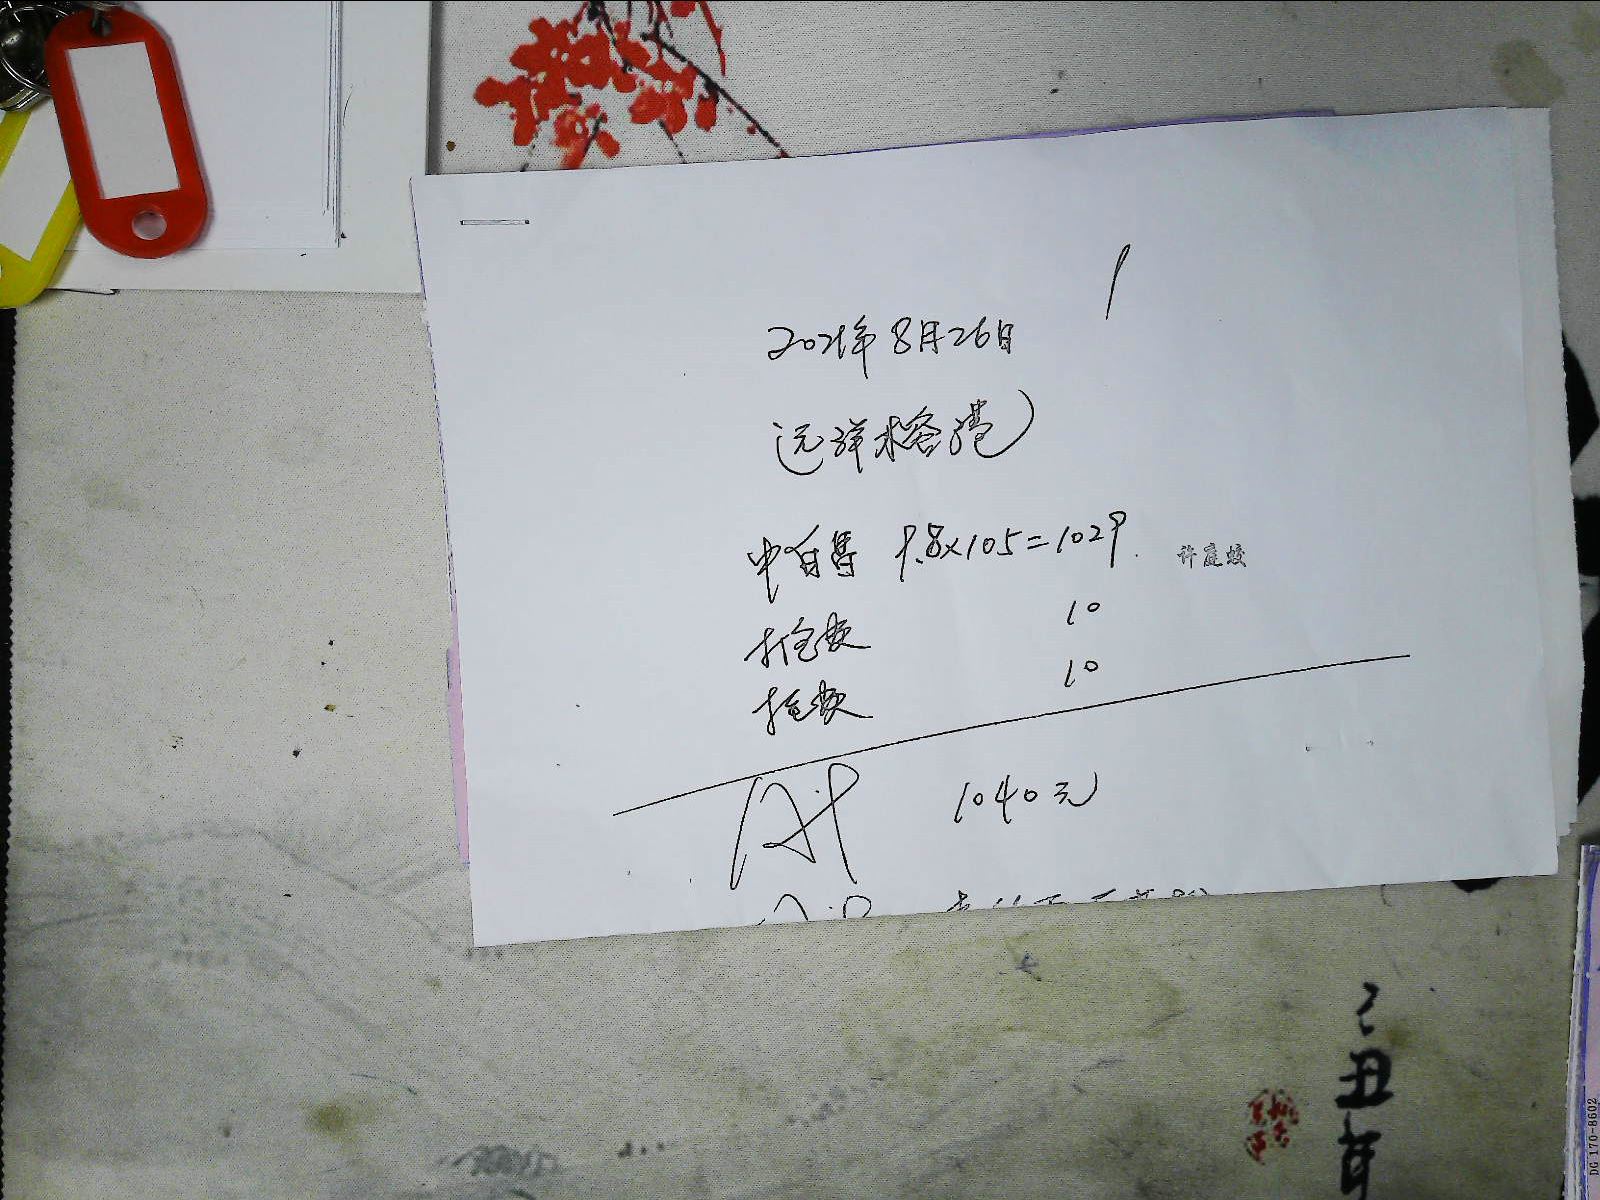 1
2021年8月26日
远洋水榕巷
中自售 9.8×105=1029
许庭蛟
打包费 10
打包费 10
1040元
丑年
DG 170-8602